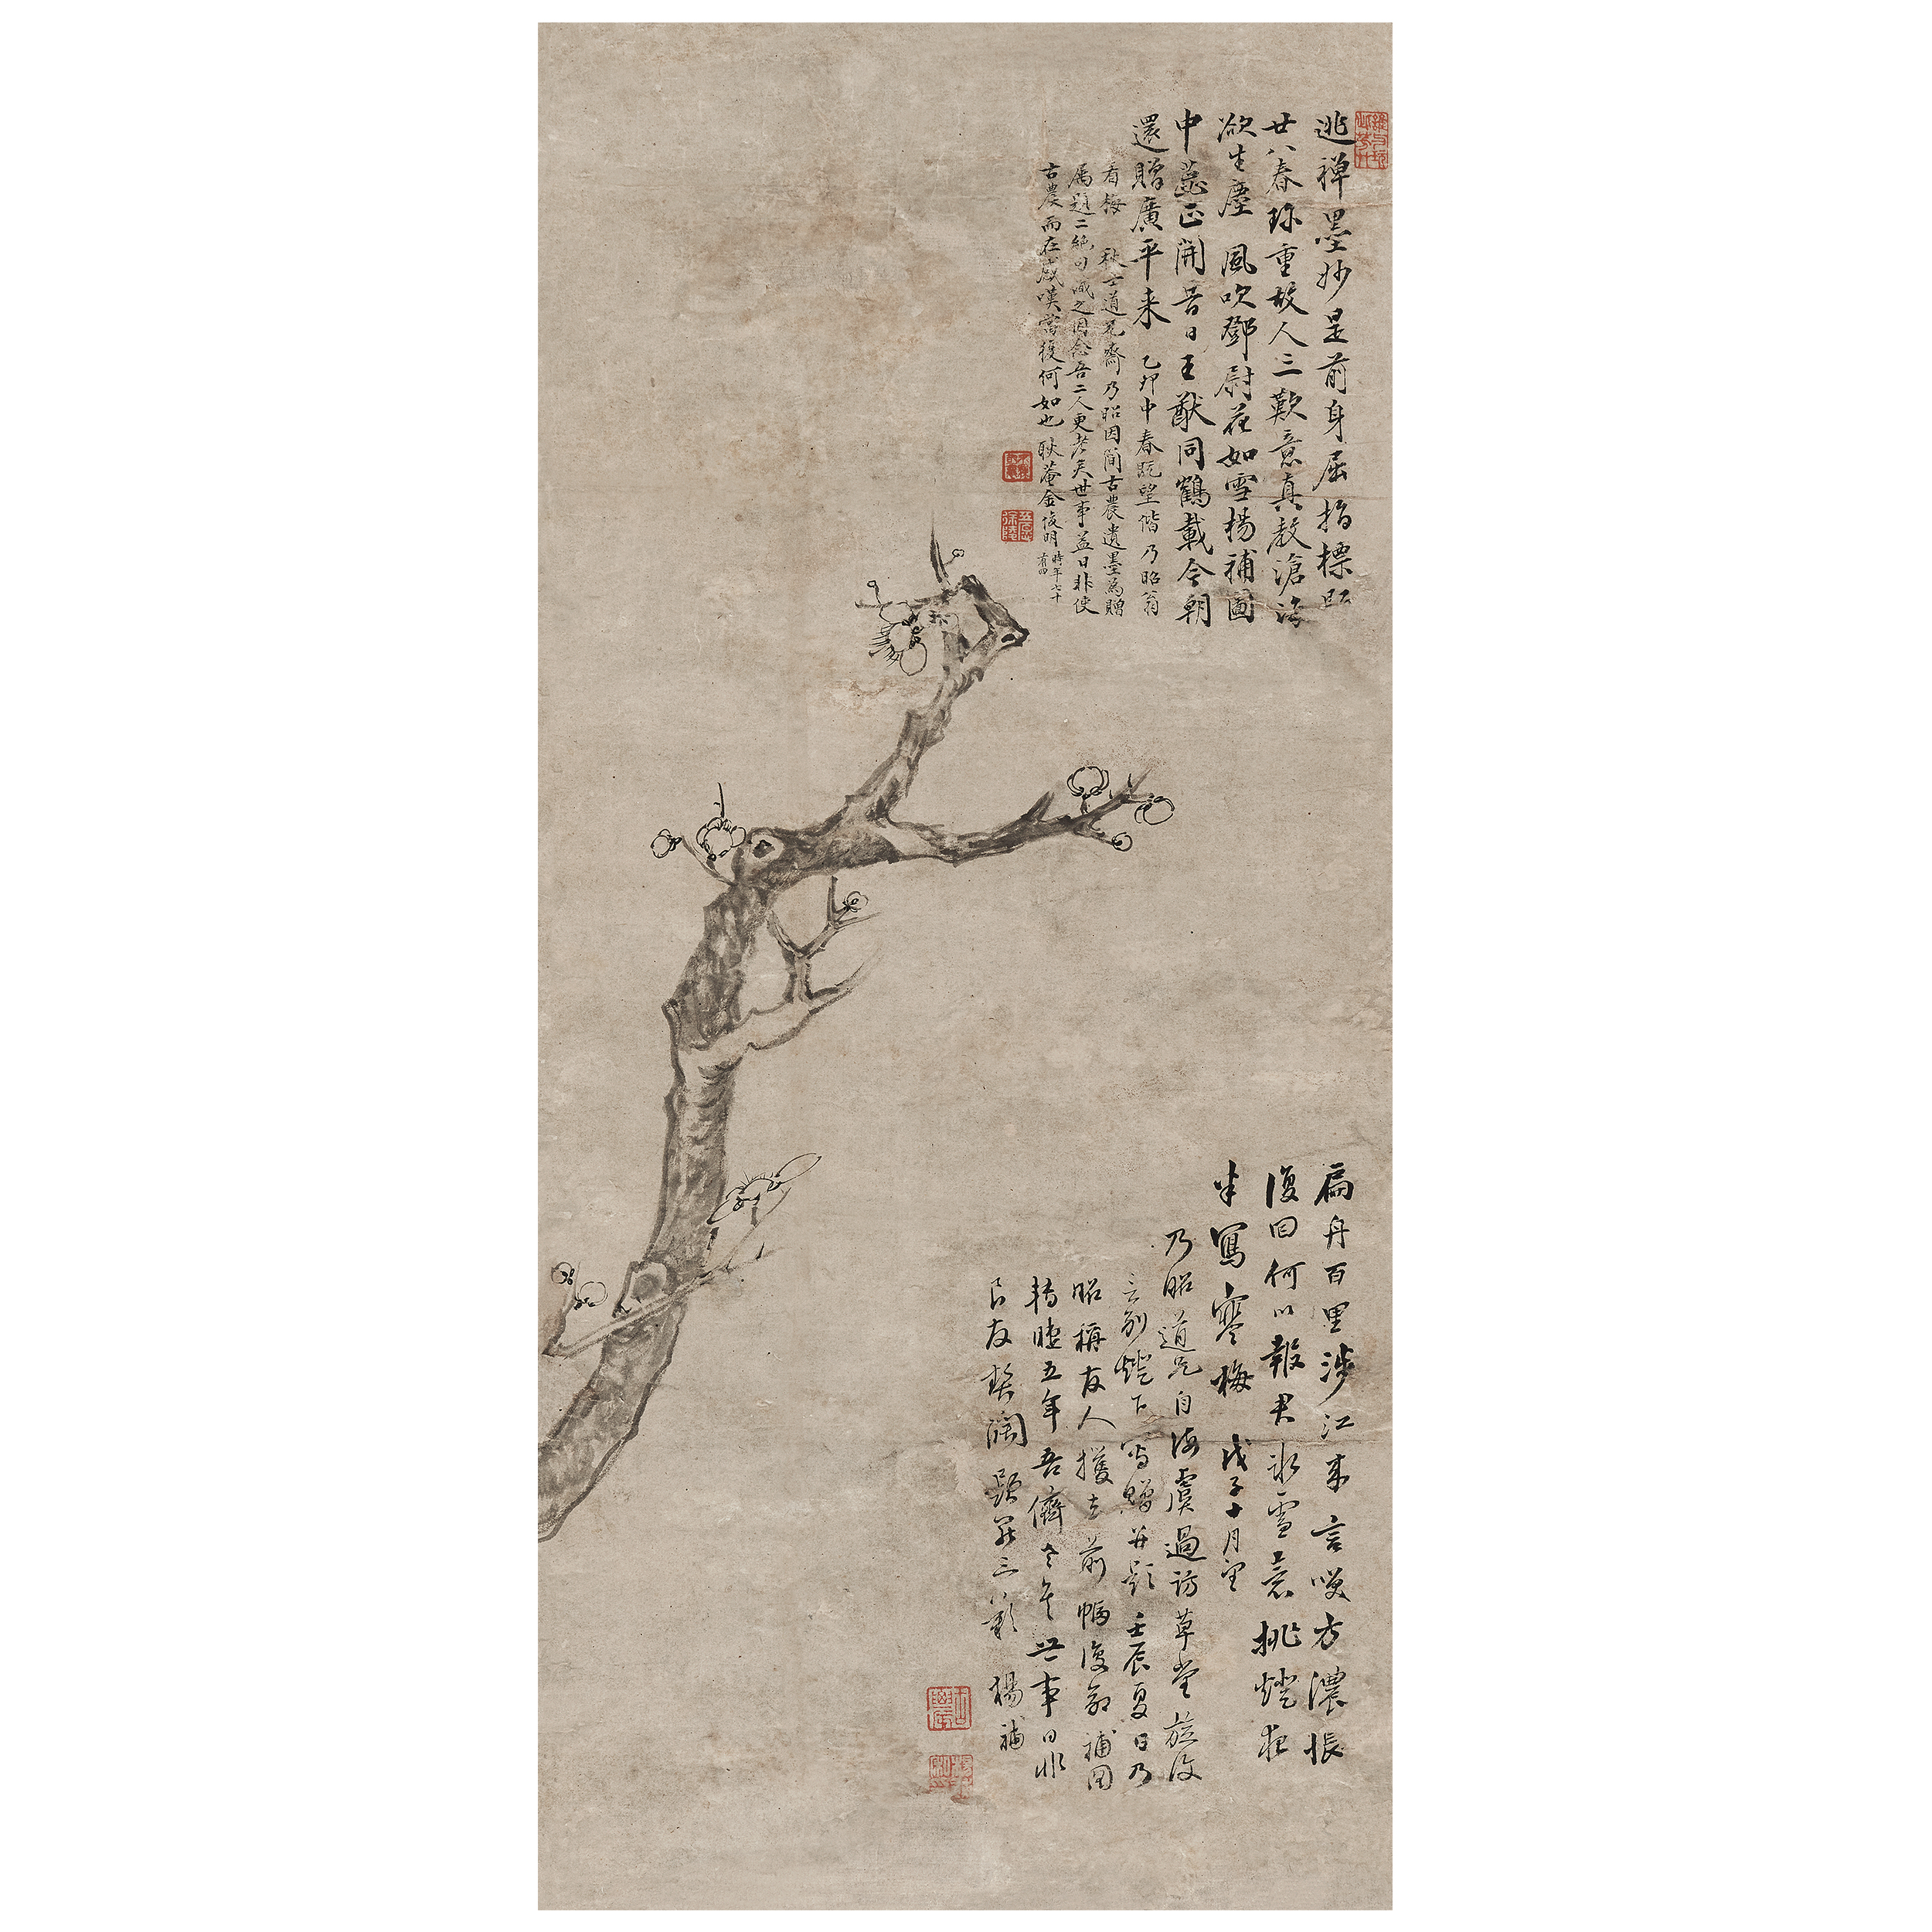 逃禅墨妙是前身屈指標
廿八春珎重故人三歎意真教滄海
欲生塵風吹鄧尉花如雪楊補圖
中蕋正開昔日王猷同鶴載今朝
還贈廣平来乙卯中春既望偕乃昭翁
看梅秋士道兄齋乃昭因簡古農遺墨為贈
属題二絶句識之因念吾二人更老矣世事益日非使
古農而在感嘆當復何如也耿菴金俊明時年七十
有四
扁舟百里涉江来言咲方濃悵
復回何以報君氷雪意挑燈夜
半寫寒梅戊子十月望
乃昭道兄自海虞過訪草堂旋復
言别燈下寫贈并題壬辰夏日乃
昭稱友人攫去前幅復命補圖
轉睫五年吾儕冬矣世事日非
良友契闊題罷三歎楊補